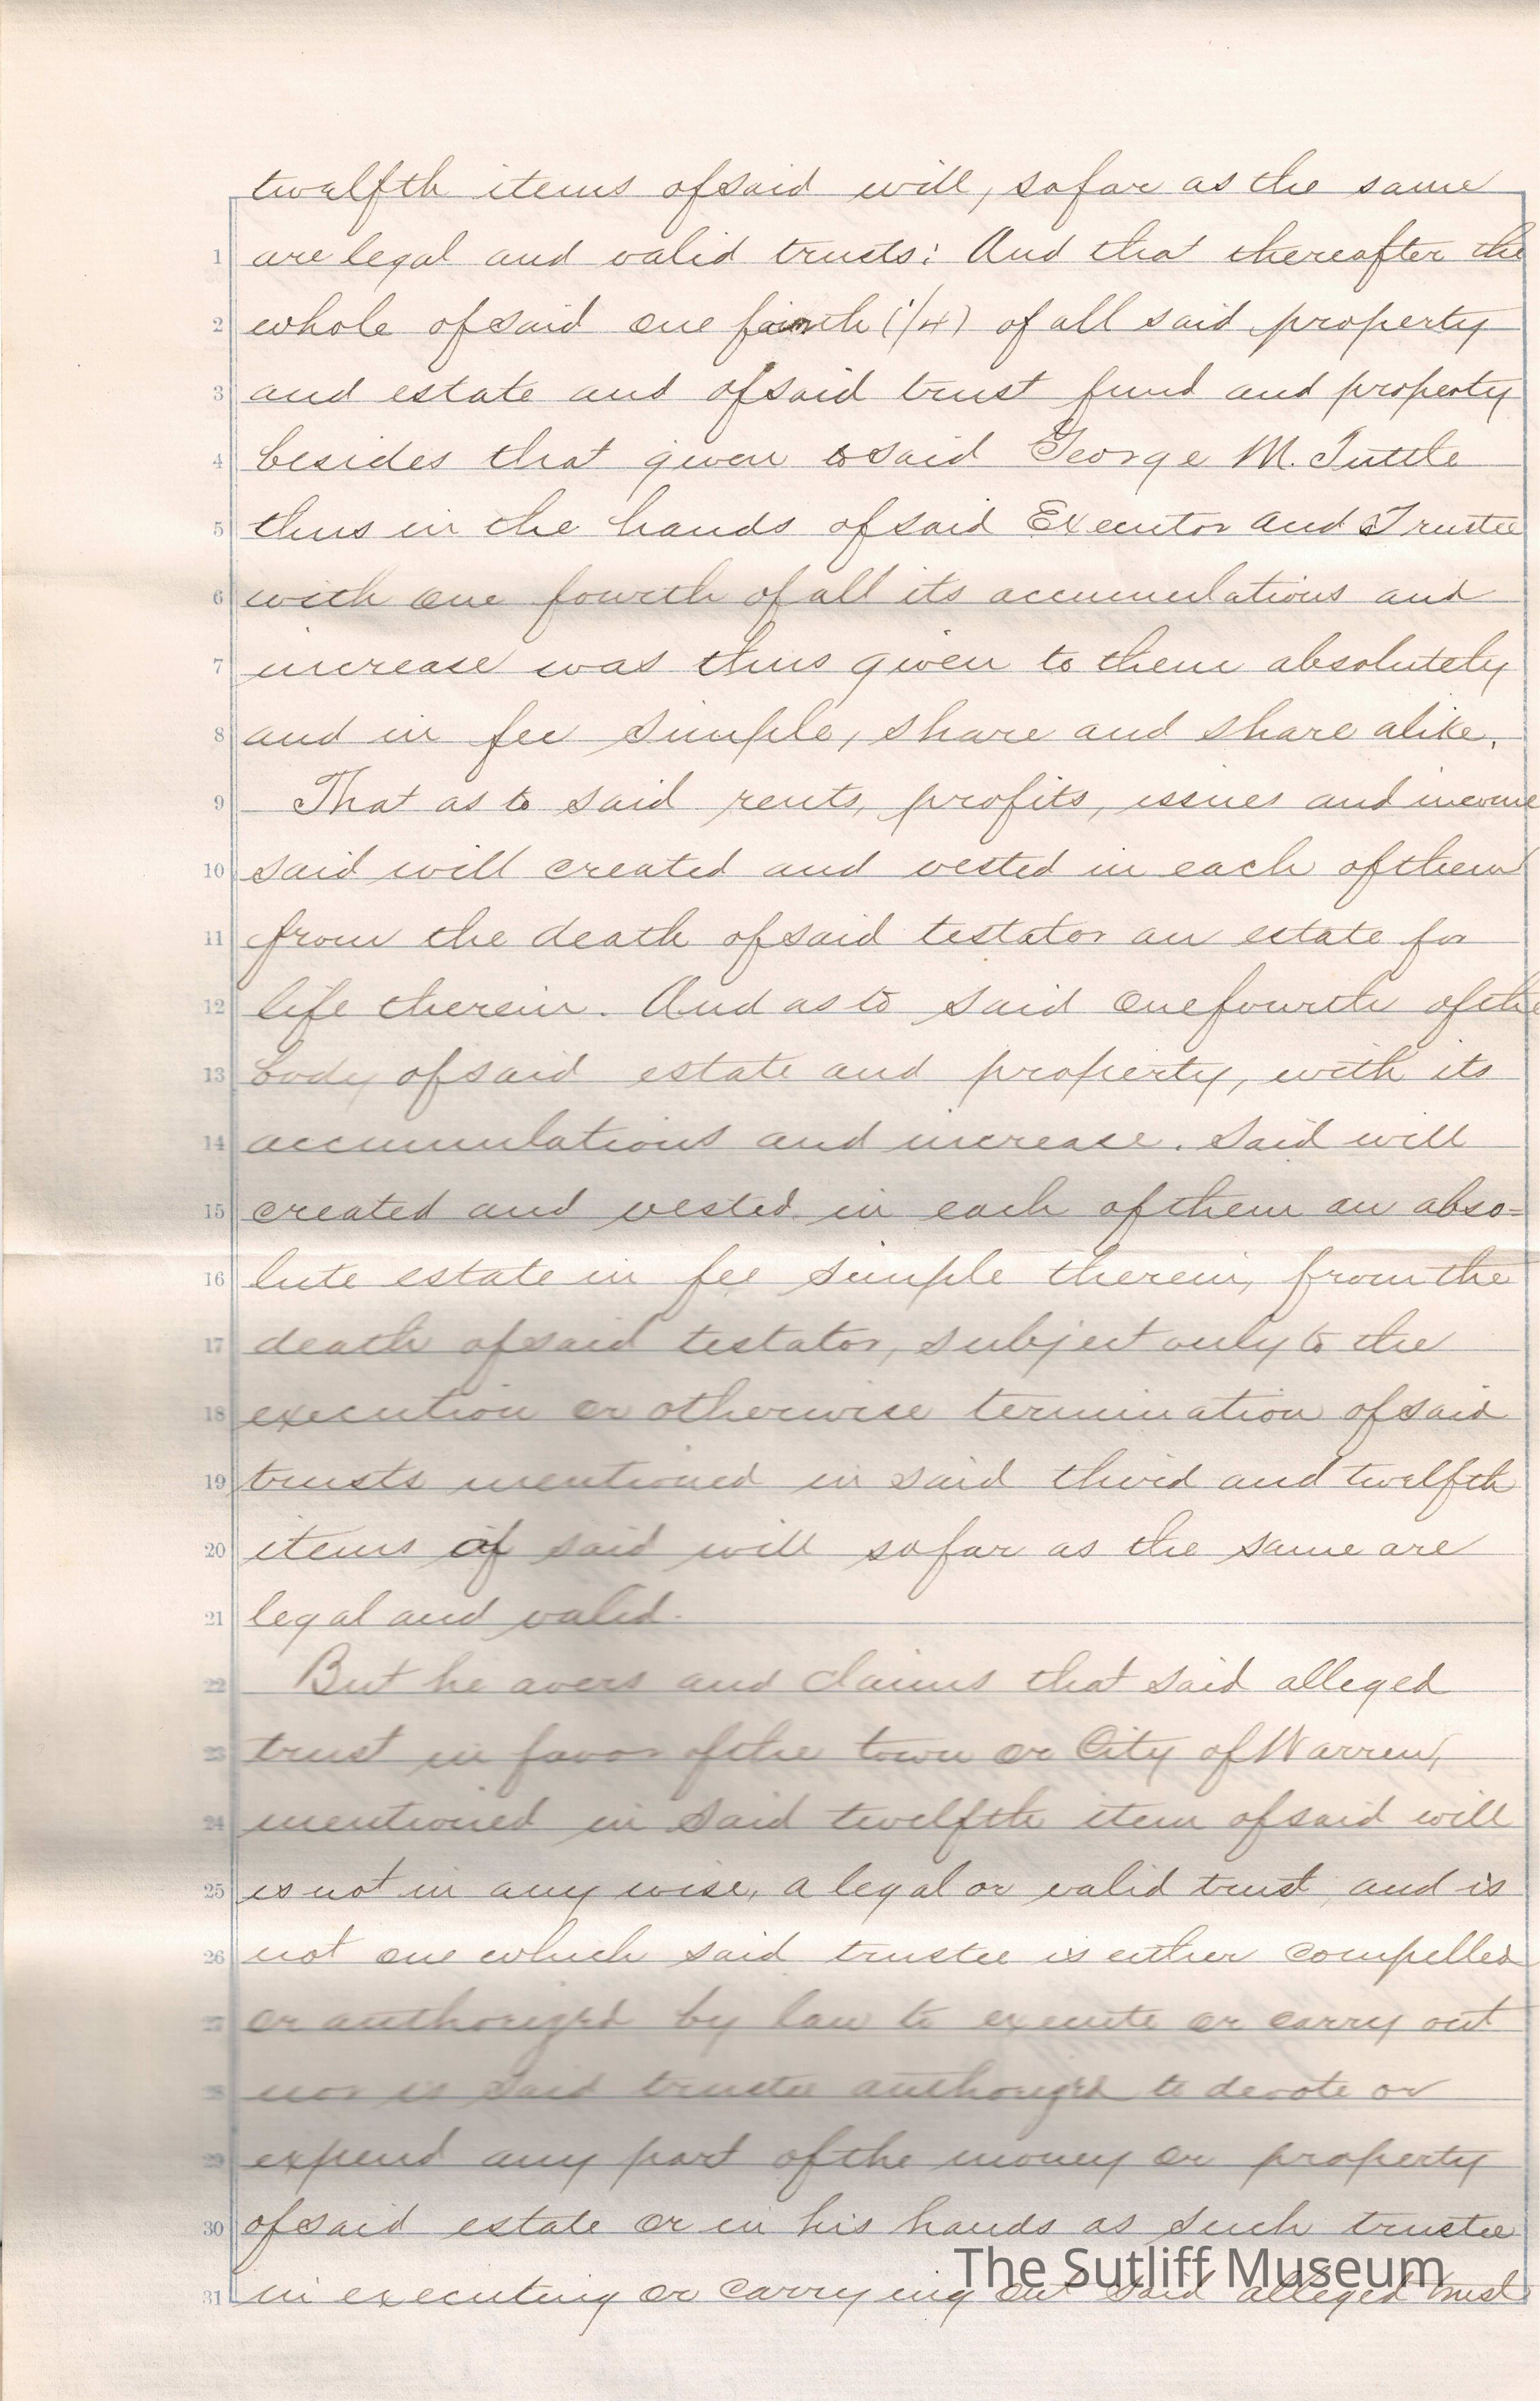 twelfth items of said will, so far as the same
1 are legal and valid trusts: And that thereafter the
2 whole of said one fourth (1/4) of all said property
3 and estate and of said trust fund and property
4 besides that given to said George M. Tuttle
5 thus in the hands of said Executor and Trustee
6 with one fourth of all its accumulations and
7 increase was thus given to them absolutely
8 and in fee simple, share and share alike.
9 That as to said rents, profits, issues and income
10 said will created and vested in each of them
11 from the death of said testator an estate for
12 life therein. And as to said one fourth of the
13 body of said estate and property, with its
14 accumulations and increase. Said will
15 created and vested in each of them an abso=
16 lute estate in fee simple therein, from the
17 death of said testator, subject only to the
18 execution or otherwise termination of said
19 trusts mentioned in said third and twelfth
20 items of said will so far as the same are
21 legal and valid.
22 But he avers and claims that said alleged
23 trust in favor of the town or City of Warren,
24 mentioned in said twelfth item of said will
25 is not in any wise, a legal or valid trust, and is
26 not one which said trustee is either compelled
27 or authorized by law to execute or carry out
28 nor is said trustee authorized to devote or
29 expend any part of the money or property
30 of said estate or in his hands as such trustee
The Sutliff Museum
31 in executing or carrying out said alleged trust